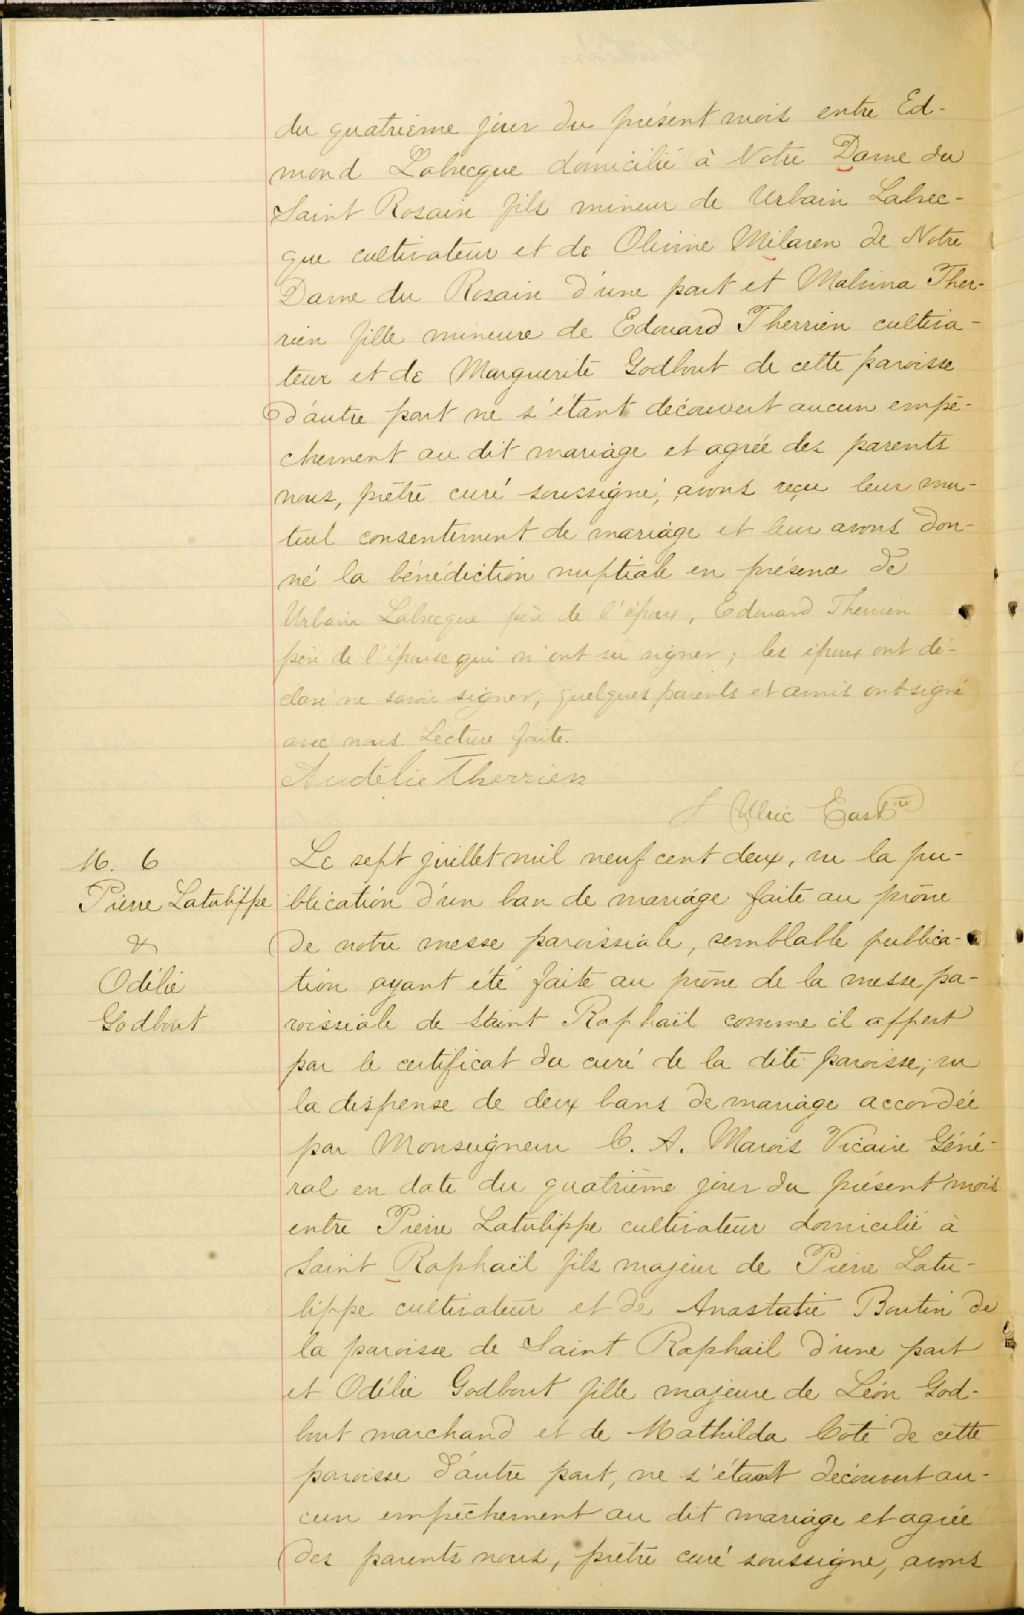 du quatrième jour du présent mois entre Ed-
mond Labrecque domicilié à Notre Dame du
Saint Rosaire fils mineur de Urbain Labrec-
que cultivateur et de Olivine Milaren de Notre
Dame du Rosaire d'une part et Malvina Ther-
rien fille mineure de Edouard Therrien cultiva-
teur et de Marguerite Godbout de cette paroisse
d'autre part ne s'étant découvert aucun empê-
chement au dit mariage et agréé des parents
nous, prêtre curé soussigné, avons reçu leur mu-
tuel consentement de mariage et leur avons don-
né la bénédiction nuptiale en présence de
Urbain Labrecque père de l'époux, Edouard Therrien
père de l'épouse qui n'ont su signer; les époux ont dé-
claré ne savoir signer; quelques parents et amis ont signé
avec nous. Lecture faite.
Audélie Therrien
J Ulric East ptre
M. 6
Pierre Latulippe
&
Odélie
Godbout
Le sept juillet mil neuf cent deux, vu la pu-
blication d'un ban de mariage faite au prône
de notre messe paroissiale, semblable publica-
tion ayant été faite au prône de la messe pa-
roissiale de Saint Raphaël comme il appert
par le certificat du curé de la dite paroisse; vu
la dispense de deux bans de mariage accordée
par Monseigneur C. A. Marois Vicaire Géné-
ral en date du quatrième jour du présent mois
entre Pierre Latulippe cultivateur domicilié à
Saint Raphaël fils majeur de Pierre Latu-
lippe cultivateur et de Anastasie Boutin de
la paroisse de Saint Raphaël d'une part
et Odélie Godbout fille majeure de Léon God-
bout marchand et de Mathilda Coté de cette
paroisse d'autre part, ne s'étant découvert au-
cun empêchement au dit mariage et agréé
des parents nous, prêtre curé soussigné, avons